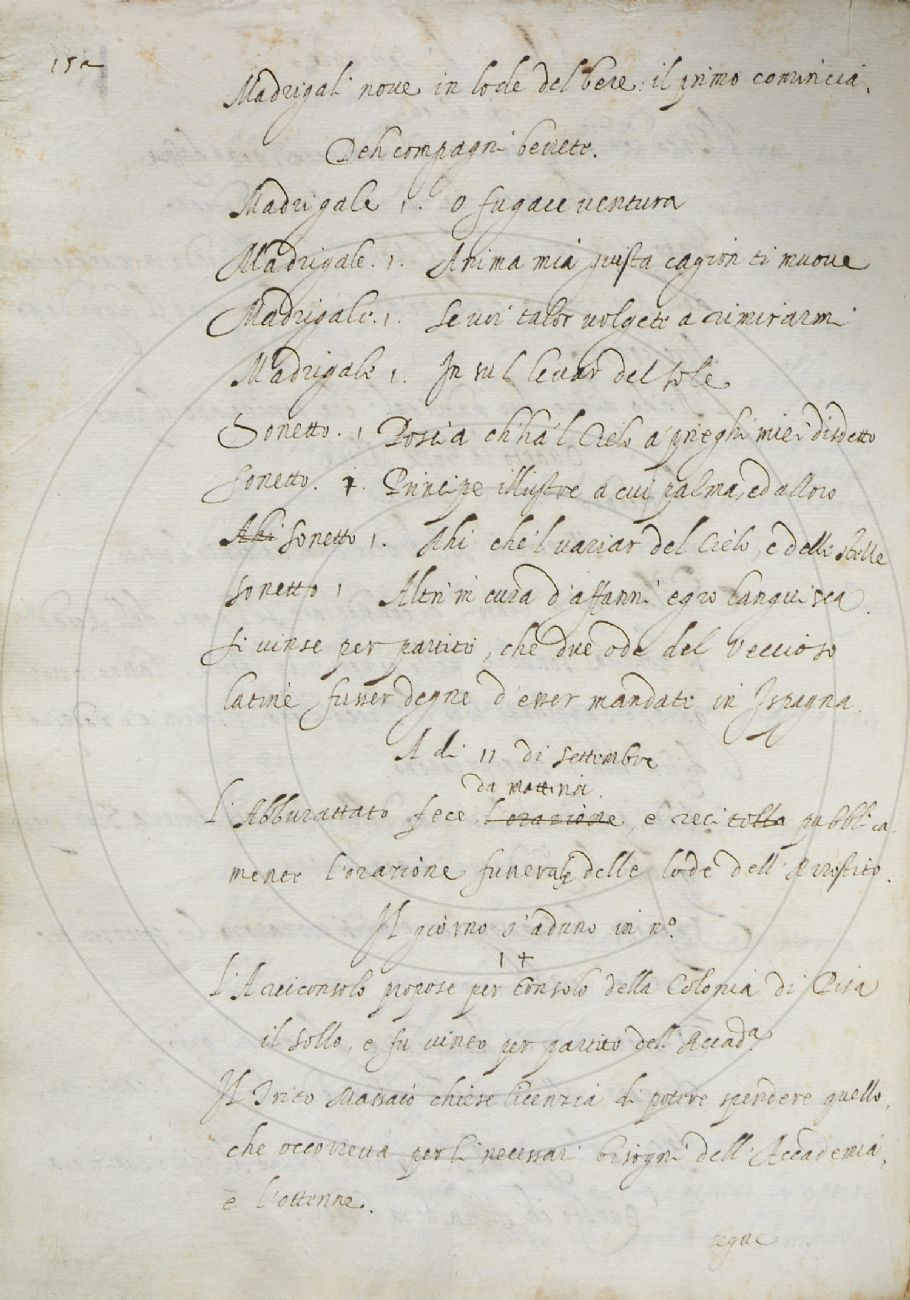 152
Madrigali noue in lode del bere: il primo comincia.
Deh compagni beuete.
Madrigale 1. o fugace uentura
Madrigale. 1. Anima mia giusta cagion ti muoue
Madrigale. 1. Se uoi talor uolgete a rimirarmi
Madrigale 1. In sul leuar del sole
Sonetto. 1 Poscia ch'ha 'l Cielo a' prieghi miei disdetto
Sonetto. 1. Principe illustre a cui palma, ed alloro
Ahi sonetto 1. Ahi che 'l uariar del Cielo, e delle stelle
Sonetto 1 Altri in cura d'affanni egro languisca.
Si uinse per partito, che due ode del Veccioso
latine fusser degne d'esser mandate in Ispagna.
A di 11 di settembre
da mattina.
L'Abburattato fece l'orazione, e recitolla pubblica-
mente l'orazione funerale delle lode dell'Arrostito.
Il giorno s'aduno in no.
1 +
L'Arciconsolo propose per Consolo della Colonia di Pisa
il sollo, e fu uinto per partito dell'Accada.
Il Trito Massaio chiese licenzia di potere spendere quello,
che occorreua per li necessari bisogni dell'Accademia,
e l'ottenne.
segue